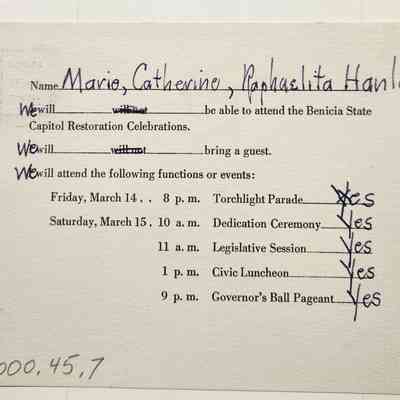 Name Marie, Catherine, Raphaelita Hanl
We will will not be able to attend the Benicia State
Capitol Restoration Celebrations.
We will will not bring a guest.
We will attend the following functions or events:
Friday, March 14 . . 8 p. m. Torchlight Parade Yes
Saturday, March 15 . 10 a. m. Dedication Ceremony Yes
11 a. m. Legislative Session Yes
1 p. m. Civic Luncheon Yes
9 p. m. Governor's Ball Pageant Yes
000.45.7